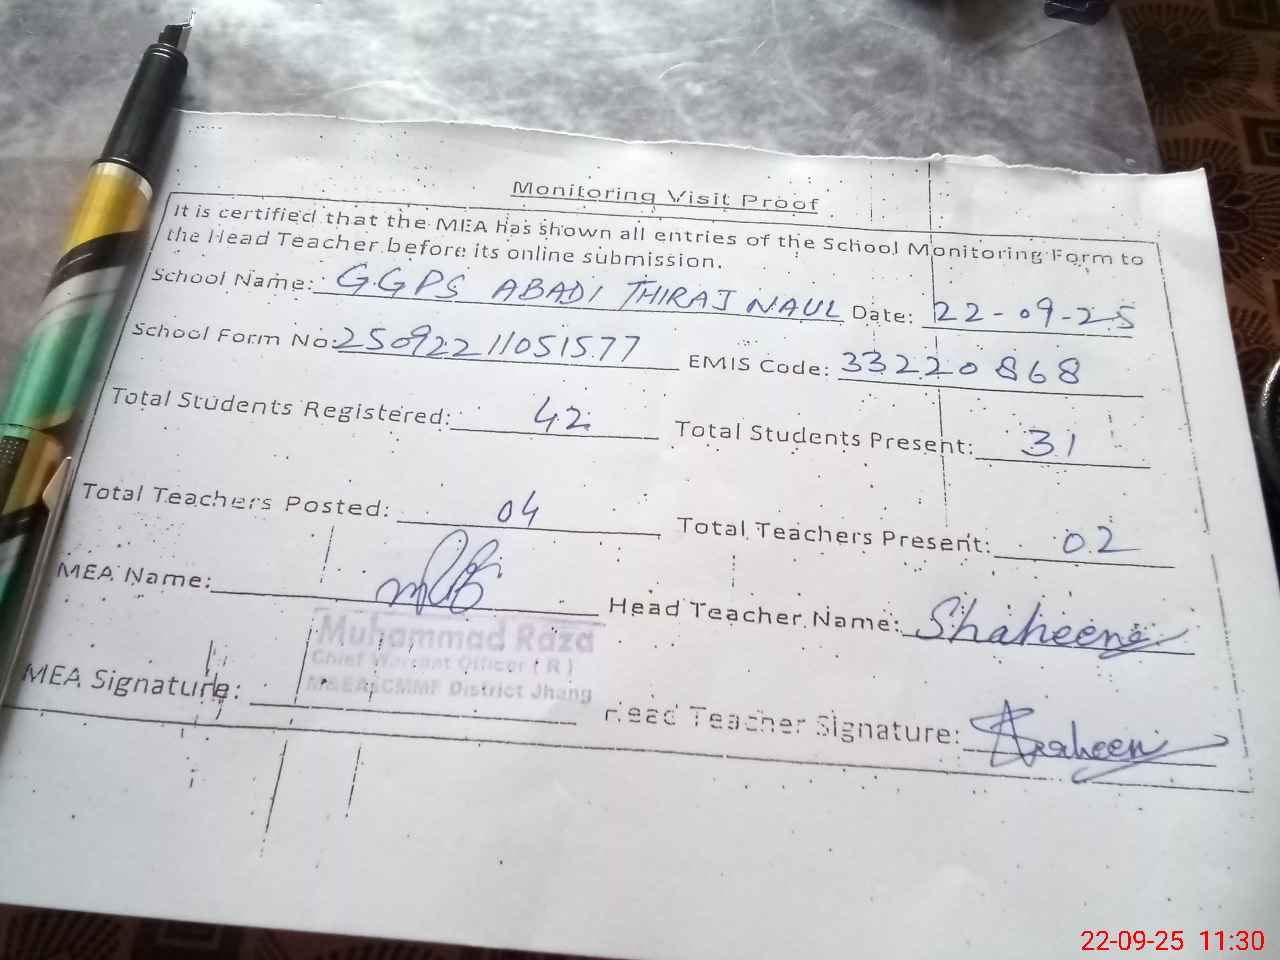 Monitoring Visit Proof
It is certified that the MEA has shown all entries of the School Monitoring Form to
the Head Teacher before its online submission.
School Name: G.GPS ABADI THIRAJ NAUL Date: 22-09-25
School Form No: 25092211051577 EMIS Code: 33220868
Total Students Registered: 42 Total Students Present: 31
Total Teachers Posted: 04 Total Teachers Present: 02
MEA Name: Head Teacher Name: Shaheena
Muhammad Raza
Chief Warrant Officer (R)
District Jhang
MEA Signature: Head Teacher Signature: Shaheen
22-09-25 11:30